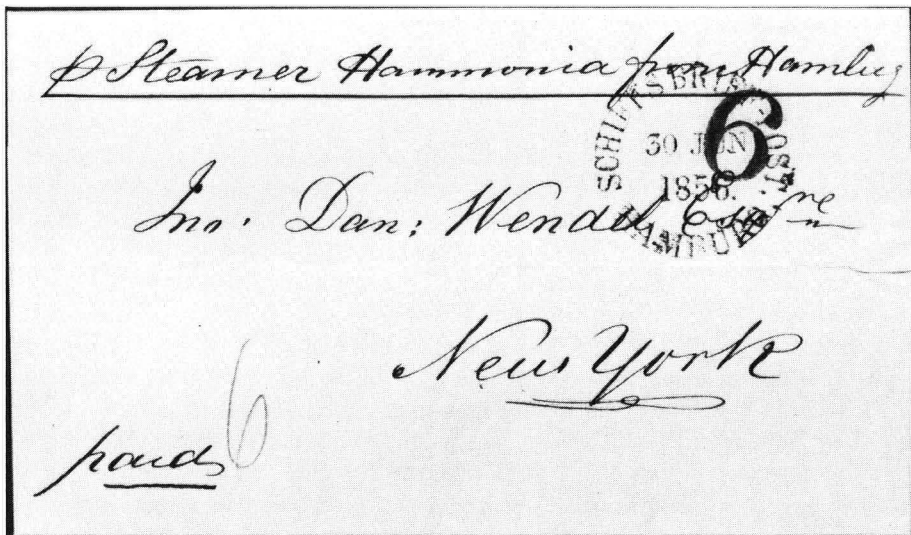 p Steamer Hammonia from Hamburg
SCHIFFSBRIEF-POST.
6
30 JUN
1856.
HAMBURG
Jno. Dan: Wendel Esqre
New York
paid 6